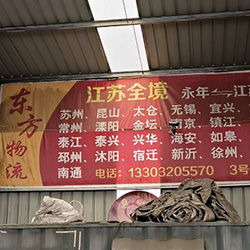 东方物流
江苏全境 永年⇌江
苏州、昆山、太仓、无锡、宜兴、
常州、溧阳、金坛、 京、镇江、
泰江、泰兴、兴华、海安、如皋、
邳州、沐阳、宿迁、新沂、徐州、
南通 电话：13303205570 3号